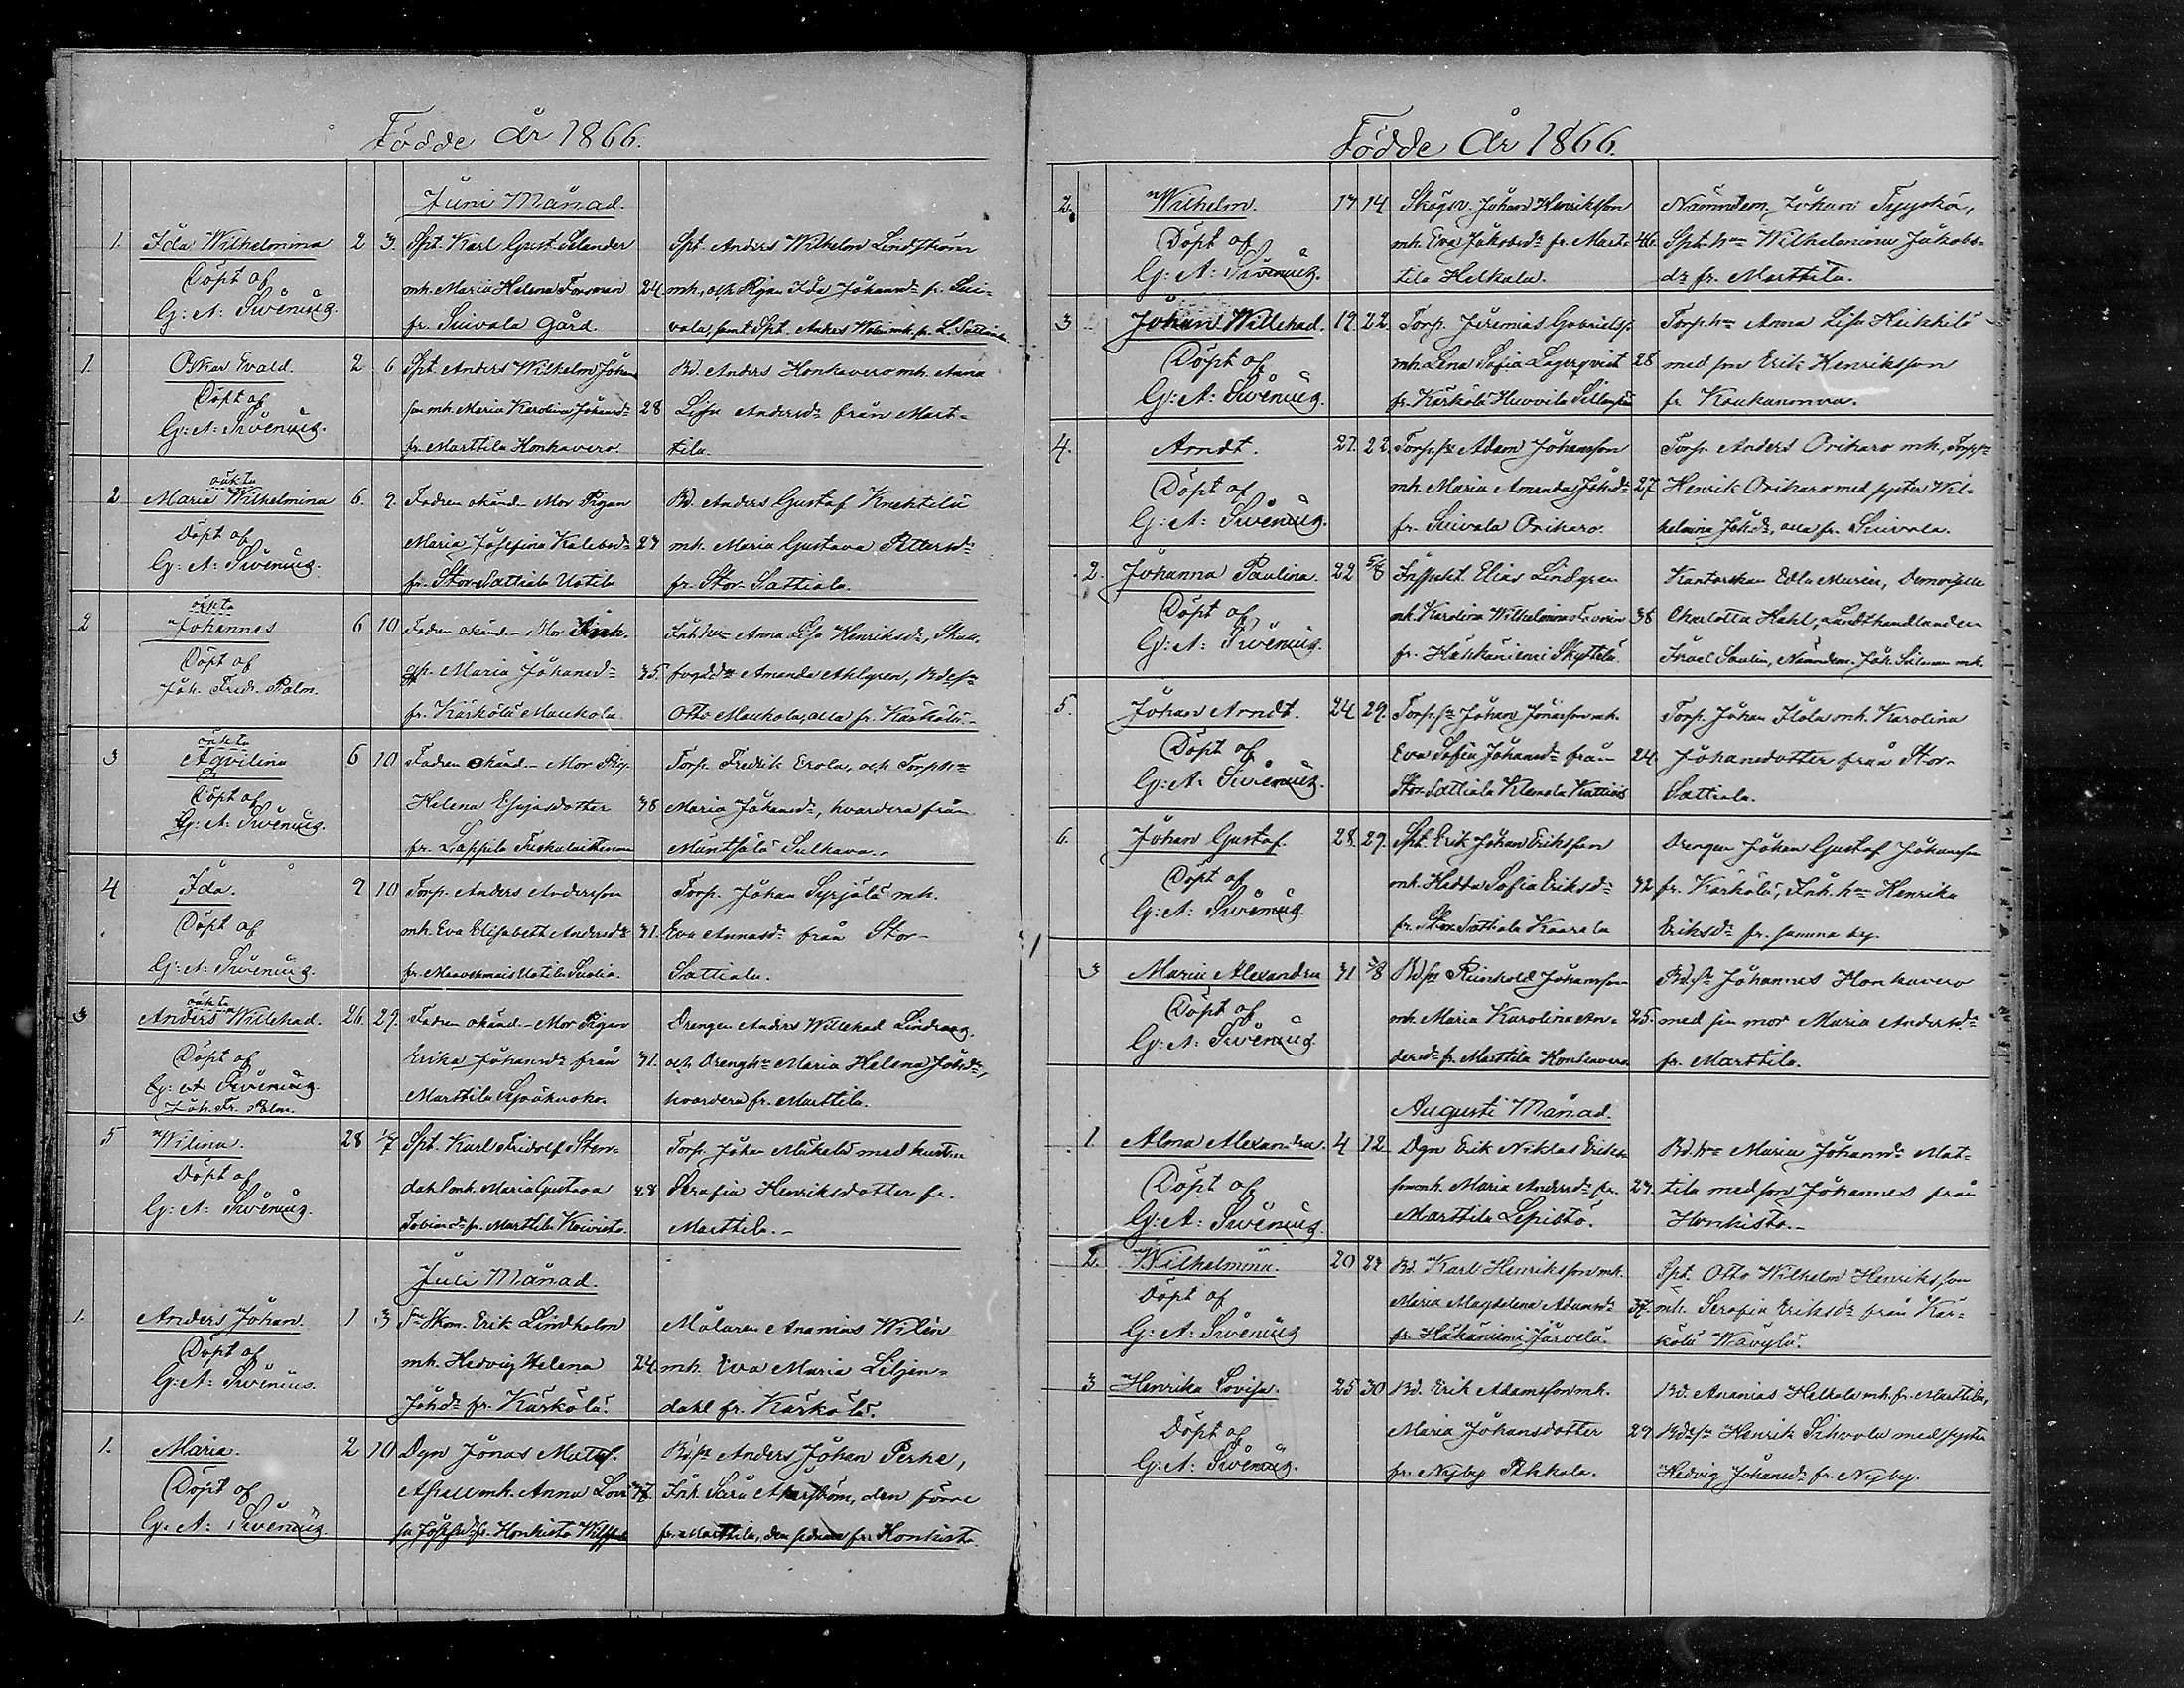 Födde år 1866.
Juni Månad.
1. Ida Wilhelmina 2 3. Spt. Karl Gust. Selander Spt. Anders Wilhelm Lindström
Döpt af mh. Maria Helena Forsman 24 mh., och Pigan Ida Johansd:r fr. Sui-
G: A: Swenüg. fr. Suivala Gård. vala samt Spt. Anders mh. fr. L. Sattiala
1. Oskar Evald. 2 6 Spt. Anders Wilhelm Johan Bd. Anders Honkavero mh. Anna
Döpt af son mh. Maria Karolina Johansd:r 28 Lisa Andersd:r från Mart-
G: A: Swenüg. fr. Marttila Honkavero. tila.
oäkta
2 Maria Wilhelmina 6. 9. Fadren okänd - Mor Pigan Bd. Anders Gustaf Knehtilä
Döpt af Maria Josefina Kalebsd:r 27 mh. Maria Gustava Pettersd:r
G: A: Swenüg. fr. Stor-Sattiala Uotila fr. Stor-Sattiala.
oäkta
2 Johannes 6 10 Fadren okänd - Mor Inh. Inh. h:u Anna Lisa Henriksd:r, Skou
Döpt af Maria Johansd:r 35. fogdd:r Amanda Ahlgren, Bdes:n
Joh. Fredr. Palm. fr. Kärkölä Maukola. Otto Maukola, alla fr. Kärkölä.-
oäkta
3 Aqvilina 6 10 Fadren okänd - Mor Pig. Torp. Fredrik Erola, och Torp.h:u
Döpt af Helena Esajasdotter 38 Maria Johansd:r, hvardera från
G: A: Swenüg. fr. Lappila Mäntsälä Sulkava.-
4 Ida. 9 10 Torp. Anders Andersson Torp. Johan Syrjälä mh.
Döpt af mh. Eva Elisabeth Andersd:r 31. Eva Annasd:r från Stor-
G: A: Swenüg. fr. Uotila Suolia. Sattiala.
oäkta
3 Anders Willehad. 26 29. Fadren okänd - Mor Pigan Drengen Anders Willehad
Döpt af Erika Johansd:r från 31. och Drengh:u Maria Helena Johsd:r,
G: A: Swenüg Marttila hvardera fr. Marttila.
Joh. Fr. Palm.
5 Wilina. 28 1/7 Spt. Karl Fridolf Sten- Torp. Johan Mäkelä med hustru
Döpt af dahl mh. Maria Gustava 28 Serafia Henriksdotter fr.
G: A: Swenüg. Tobiasd:r fr. Marttila Koivisto. Marttila.-
Juli Månad.
1. Anders Johan. 1 3 Skom. Erik Lindholm Målaren Ananias Wilén
Döpt af mh. Hedvig Helena 24. mh. Eva Maria Liljen-
G: A: Swenius. Johd:r fr. Kärkölä. dahl fr. Kärkölä.
1. Maria. 2 10 Dgn Jonas Matts. Bds:n Anders Johan Perhe,
Döpt af mh. Anna Lovi 37. Inh. Sara Åkerström, den förre
G: A: Swenüg. sa Josefsd:r fr. Honkisto fr. Marttila, den sednare fr. Honkisto.
Födde År 1866.
2. Wilhelm. 17 14 Skogv. Johan Henriksson Nämndem. Johan Tyyskä,
Döpt af mh. Eva Jakobsd:r fr. Mart- 46. Spt. h:u Wilhelmina Jakobs-
G: A: Swenüg. tila Helkala. d:r fr. Marttila.
3 Johan Willehad. 19. 22. Torp. Jeremias Gabrielss. Torp.h:u Anna Lisa Heikkilä
Döpt af mh. Lena Sofia Lagerqvist 28 med son Erik Henriksson
G: A: Swenüg. fr. Kärkölä Huovila fr. Koukunmaa.
4. Arndt. 21. 22. Torp.s:n Adam Johansson Torp. Anders Orikaro mh., Torps:n
Döpt af mh. Maria Amanda Johsd:r 27 Henrik Orikaro med syster Wil-
G: A: Swenüg. fr. Suivala Orikaro. helmina Johd:r, alla fr. Suivala.
2. Johanna Paulina. 22 5/8 Inspekt. Elias Lindgren Kantorskan Edla Murén, Demoiselle
Döpt af mh. Karolina Wilhelmina 38 Charlotta Hahl, Landthandlanden
G: A: Swenüg. fr. Hähkäniemi Skyttälä. Israel Saulin, Nämndem. Joh. mh.
5. Johan Arndt. 24 29. Torp.s:n Johan Jonasson mh. Torp. Johan Isola mh. Karolina
Döpt af Eva Sofia Johansd:r från 24. Johansdotter från Stor-
G: A: Swenüg. Stor-Sattiala Klemola Sattiala.
6. Johan Gustaf. 28. 29. Spt. Erik Johan Eriksson Drengen Johan Gustaf Johansson
Döpt af mh. Hedda Sofia Eriksd:r 32 fr. Kärkölä, Inh. h:u Henrika
G: A: Swenüg. fr. Stor-Sattiala Kaarela Eriksd:r fr. samma by.
3 Maria Alexandra 31 5/8 Bds:n Reinhold Johansson Bd.s:n Johannes Honkavero
Döpt af mh. Maria Karolina An- 25. med sin mor Maria Andersd:r
G: A: Swenüg. dersd:r fr. Marttila Honkavero. fr. Marttila.
Augusti Månad.
1. Alma Alexandra. 4 12 Dgn Erik Niklas Eriks- Bd. h:u Maria Johansd:r Mat-
Döpt af son mh. Maria Andersd:r fr. 27. tila med son Johannes från
G: A: Swenüg. Marttila Lepistö. Honkisto.-
2. Wilhelmina. 20 27 Bd. Karl Henriksson mh. Spt. Otto Wilhelm Henriksson
Döpt af Maria Magdalena Adamsd:r 37. mh. Serafia Eriksd:r från Kär-
G: A: Swenüg fr. Hähkäniemi Järvelä. kölä Wäkylä.
3 Henrika Lovisa. 25 30 Bd. Erik Adamsson mh. Bd. Ananias Helkala mh. fr. Marttila,
Döpt af Maria Johansdotter 29 Bdes:n Henrik Sihvola med syster
G: A: Swenüg. fr. Nyby Pekkala. Hedvig Johansd:r fr. Nyby.